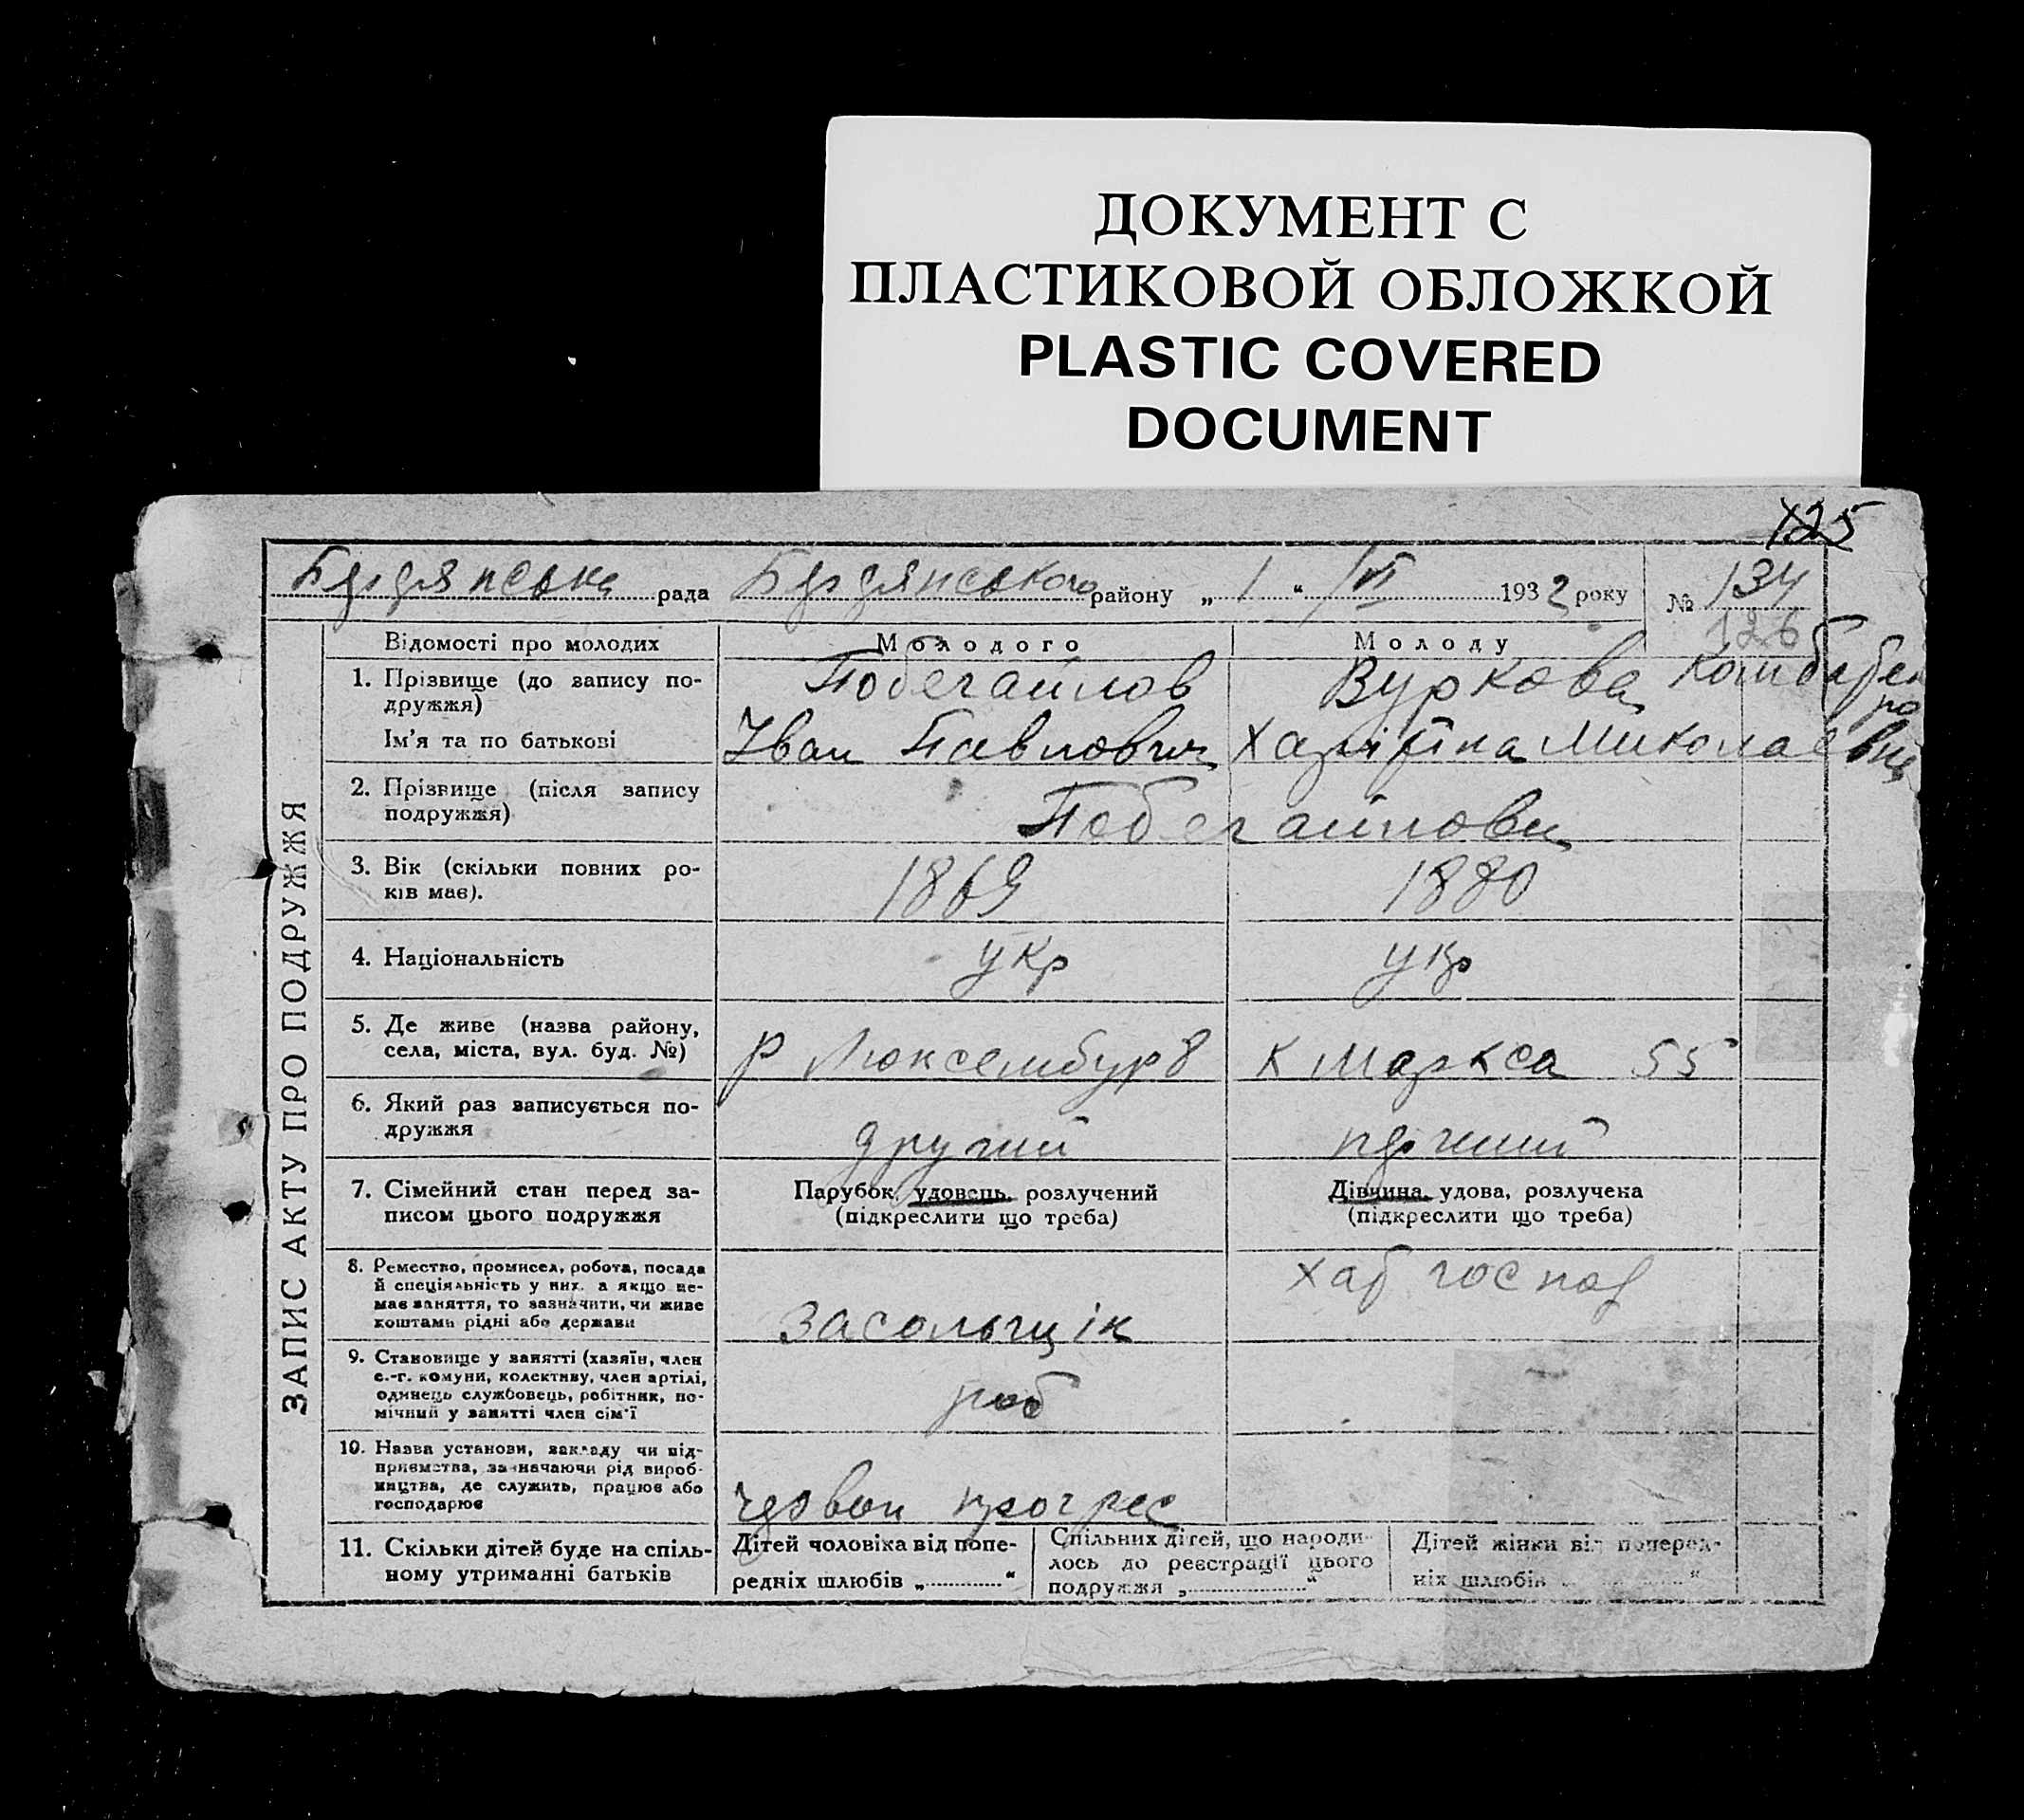 ДОКУМЕНТ С
ПЛАСТИКОВОЙ ОБЛОЖКОЙ
PLASTIC COVERED
DOCUMENT
125
Бердянська рада Бердянського району „ 1 “ VI 1932 року № 134
126
ЗАПИС АКТУ ПРО ПОДРУЖЖЯ
Відомості про молодих Молодого Молоду
1. Прізвище (до запису по-
дружжя) Побегайлов Вуркова
Ім’я та по батькові Іван Павлович Миколаевна
2. Прізвище (після запису
подружжя) Побегайлови
3. Вік (скільки повних ро-
ків має). 1869 1880
4. Національність укр укр
5. Де живе (назва району,
села, міста, вул. буд. №) Р Люксембург К Маркса 55
6. Який раз записується по-
дружжя другий перший
7. Сімейний стан перед за-
писом цього подружжя
Парубок, удовець, розлучений
(підкреслити що треба)
Дівчина, удова, розлучена
(підкреслити що треба)
8. Ремество, промисел, робота, посада
й спеціяльність у них, а якщо не-
має заняття, то зазначити, чи живе
коштами рідні або держави
засольщік
хаз господ
9. Становище у занятті (хазяїн, член
с.-г. комуни, колективу, член артілі,
одинець службовець, робітник, по-
мічний у занятті член сім’ї
роб
10. Назва установи, закладу чи під-
приємства, зазначаючи рід вироб-
ництва, де служить, працює або
господарює
червон прогрес
11. Скільки дітей буде на спіль-
ному утриманні батьків
Дітей чоловіка від попе-
редніх шлюбів „ “
Спільних дітей, що народи-
лось до реєстрації цього
подружжя „ “
Дітей жінки від поперед-
ніх шлюбів „ “